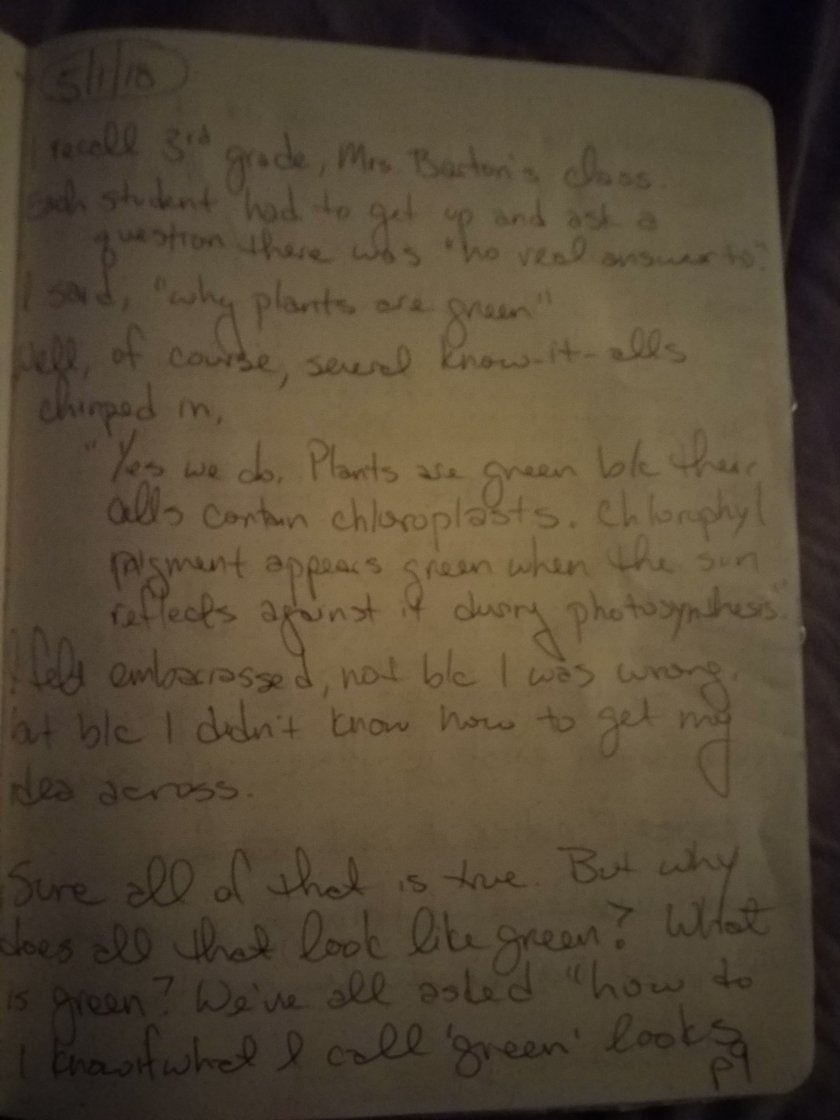 5/1/18
I recall 3rd grade, Mrs. Barton's class.
Each student had to get up and ask a
question there was "no real answer to".
I said, "why plants are green"
Well, of course, several know-it-alls
chimped in,
"Yes we do. Plants are green b/c their
cells contain chloroplasts. Chlorophyl
paigment appears green when the sun
reflects against it during photosynthesis."
I felt embarrassed, not b/c I was wrong,
but b/c I didn't know how to get my
idea across.
Sure all of that is true. But why
does all that look like green? What
is green? We've all asked "how to
I know if what I call 'green' looks
p9